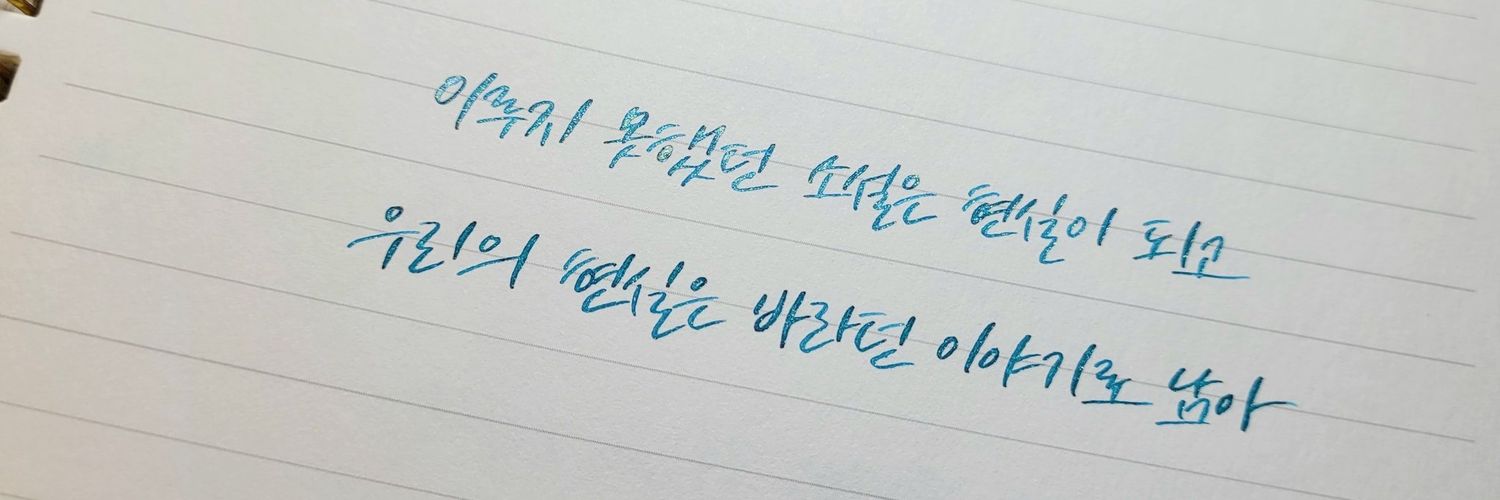 이루지 못했던 소설은 현실이 되고
우리의 현실은 바라던 이야기로 남아